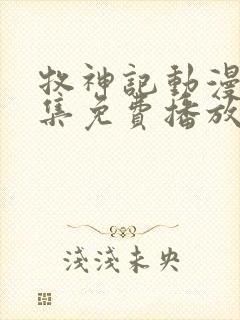 牧神記動漫
集免費播放
淺淺未央